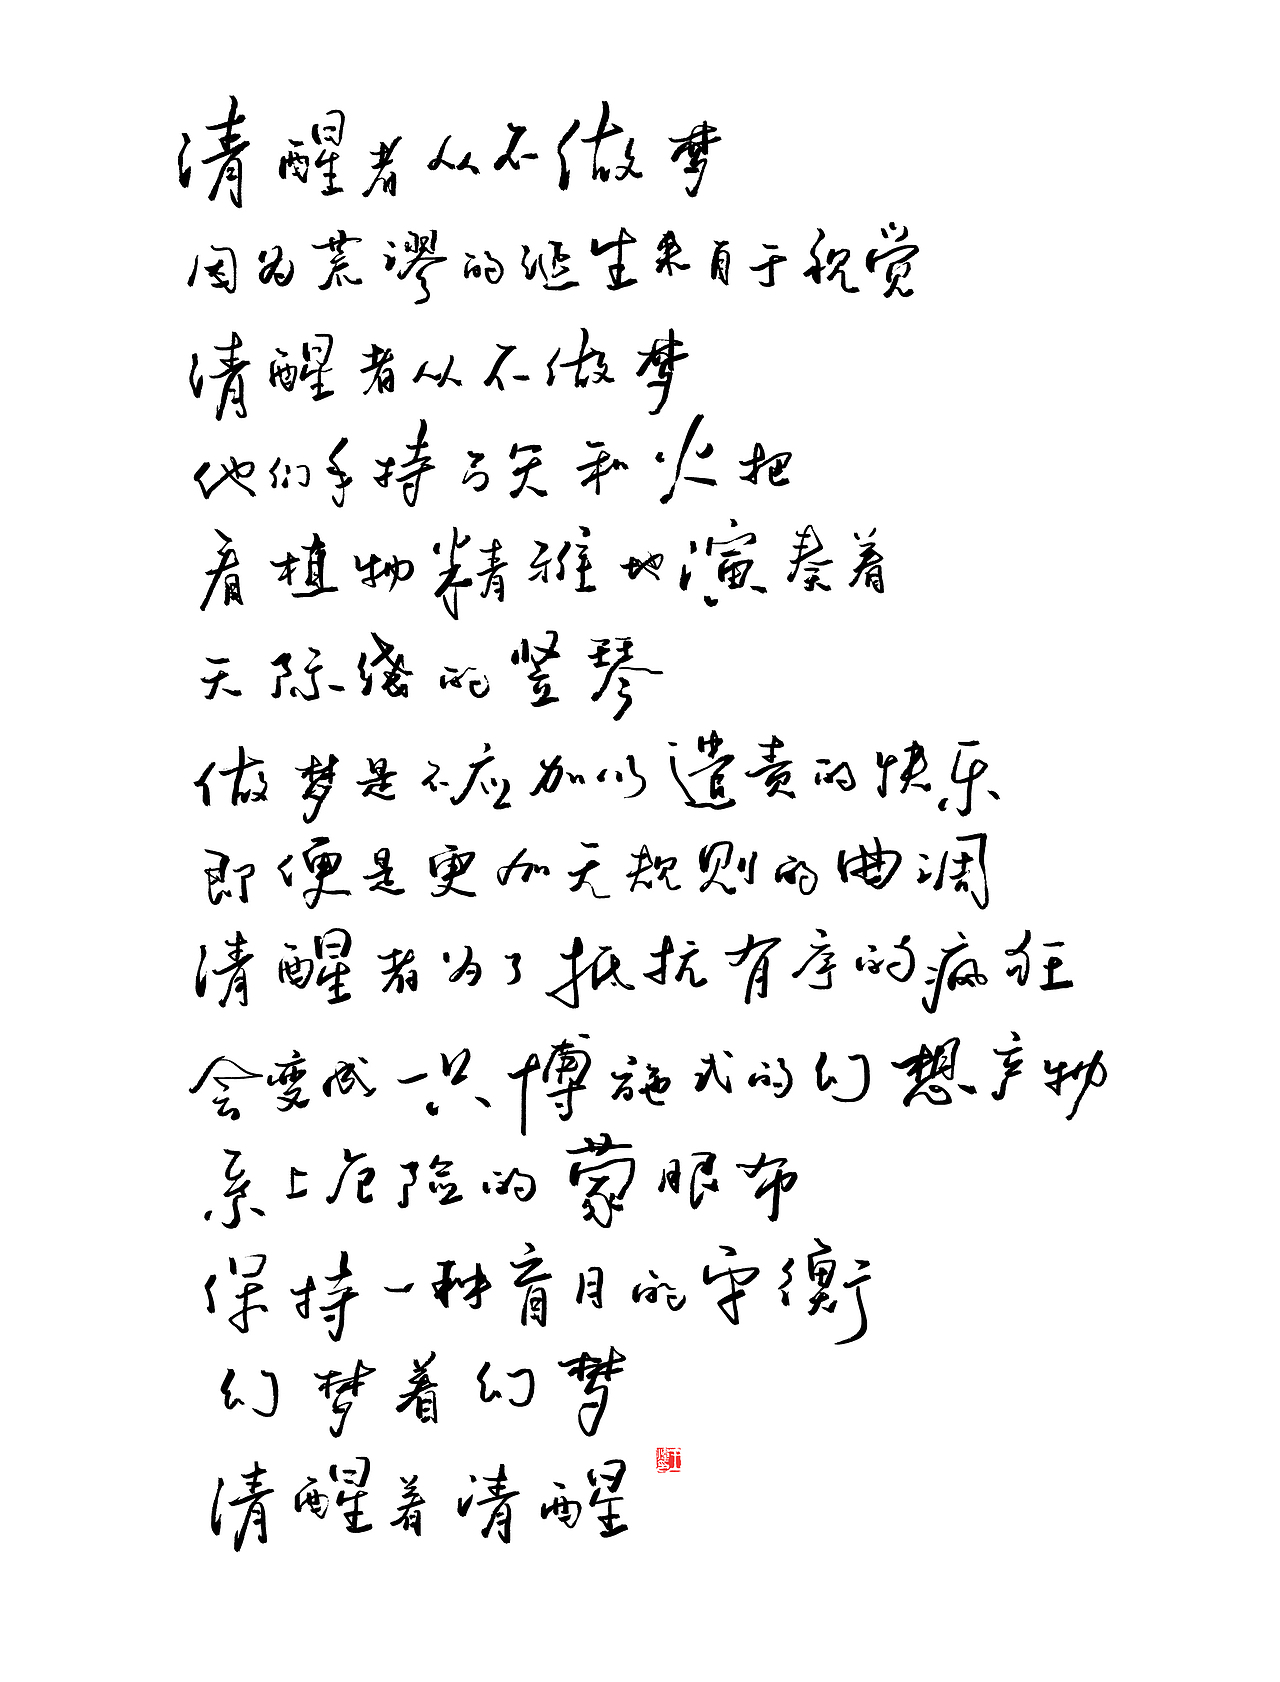 清醒者从不做梦
因为荒谬的诞生来自于视觉
清醒者从不做梦
他们手持弓矢和火把
看植物精雅地演奏着
天际线的竖琴
做梦是不应加以遣责的快乐
即便是更加无规则的曲调
清醒者为了抵抗有序的疯狂
会变成一只博施式的幻想产物
系上危险的蒙眼布
保持一种盲目的平衡
幻梦着幻梦
清醒着清醒